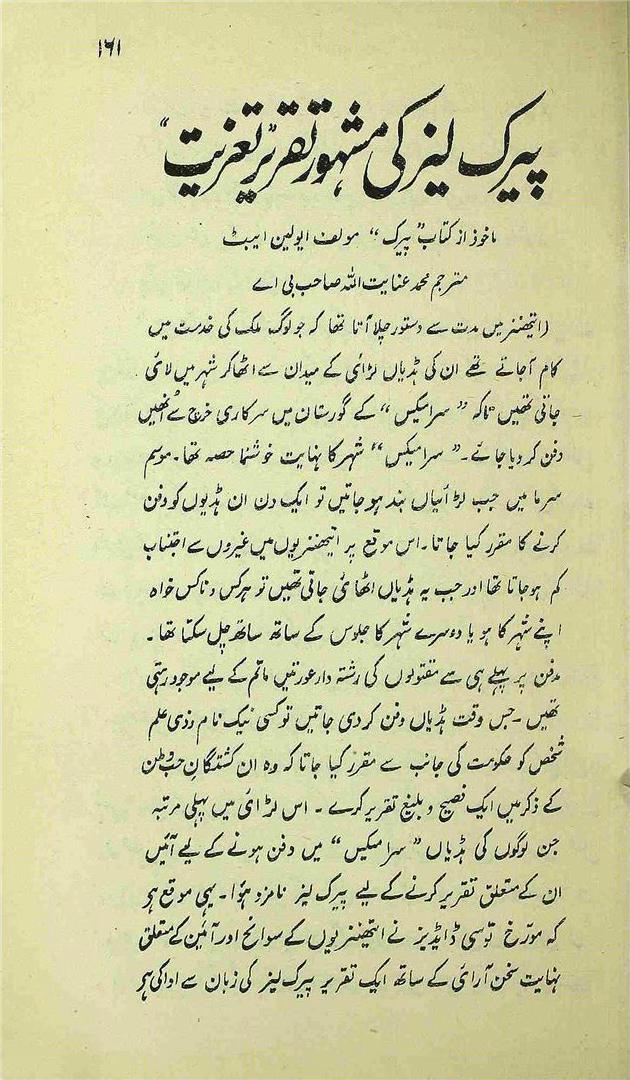 ۱۶۱
پیرک لیز کی مشہور تقریر "تعزیت"
ماخوذ از کتاب "پیرک" مولف ایولین ایبٹ
مترجم محمد عنایت اللہ صاحب بی اے
(اتیھننر میں مدت سے دستور چلا آتا تھا کہ جو لوگ ملک کی خدمت میں
کام آجاتے تھے ان کی ہڈیاں لڑائی کے میدان سے اٹھاکر شہر میں لائی
جاتی تھیں تاکہ "سرامیکس" کے گورستان میں سرکاری خرچ سے اُنھیں
دفن کر دیا جائے۔ "سرامیکس" شہر کا نہایت خوشنما حصہ تھا۔ موسم
سرما میں جب لڑائیاں بند ہوجاتیں تو ایک دن ان ہڈیوں کو دفن
کرنے کا مقرر کیا جاتا۔ اس موقع پر اتیھننریوں میں غیروں سے اجتناب
کم ہوجاتا تھا اور جب یہ ہڈیاں اٹھائی جاتی تھیں تو ہرکس و ناکس خواہ
اپنے شہر کا ہو یا دوسرے شہر کا جلوس کے ساتھ ساتھ چل سکتا تھا۔
مدفن پر پہلے ہی سے مقتولوں کی رشتہ دار عورتیں ماتم کے لیے موجود رہتی
تھیں۔ جس وقت ہڈیاں دفن کر دی جاتیں تو کسی نیک نام و ذی علم
شخص کو حکومت کی جانب سے مقرر کیا جاتا کہ وہ ان کشتگان حب وطن
کے ذکر میں ایک فصیح و بلیغ تقریر کرے۔ اس لڑائی میں پہلی مرتبہ
جن لوگوں کی ہڈیاں "سرامیکس" میں دفن ہونے کے لیے آئیں
ان کے متعلق تقریر کرنے کے لیے پیرک لیز نامزد ہؤا۔ یہی موقع ہو
کہ مورّخ توسی ڈایڈیز نے اتیھننریوں کے سوانح اور آئین کے متعلق
نہایت سخن آرائی کے ساتھ ایک تقریر پیرک لیز کی زبان سے ادا کی ہو